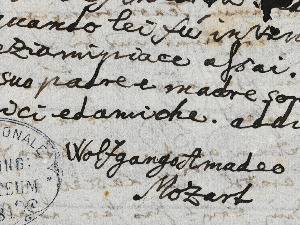 quando lei fù in ven
ezia mi piace assai.
sua padre e madre so
ici ed amiche. addi
Wolfgango Amadeo
Mozart
ONALE